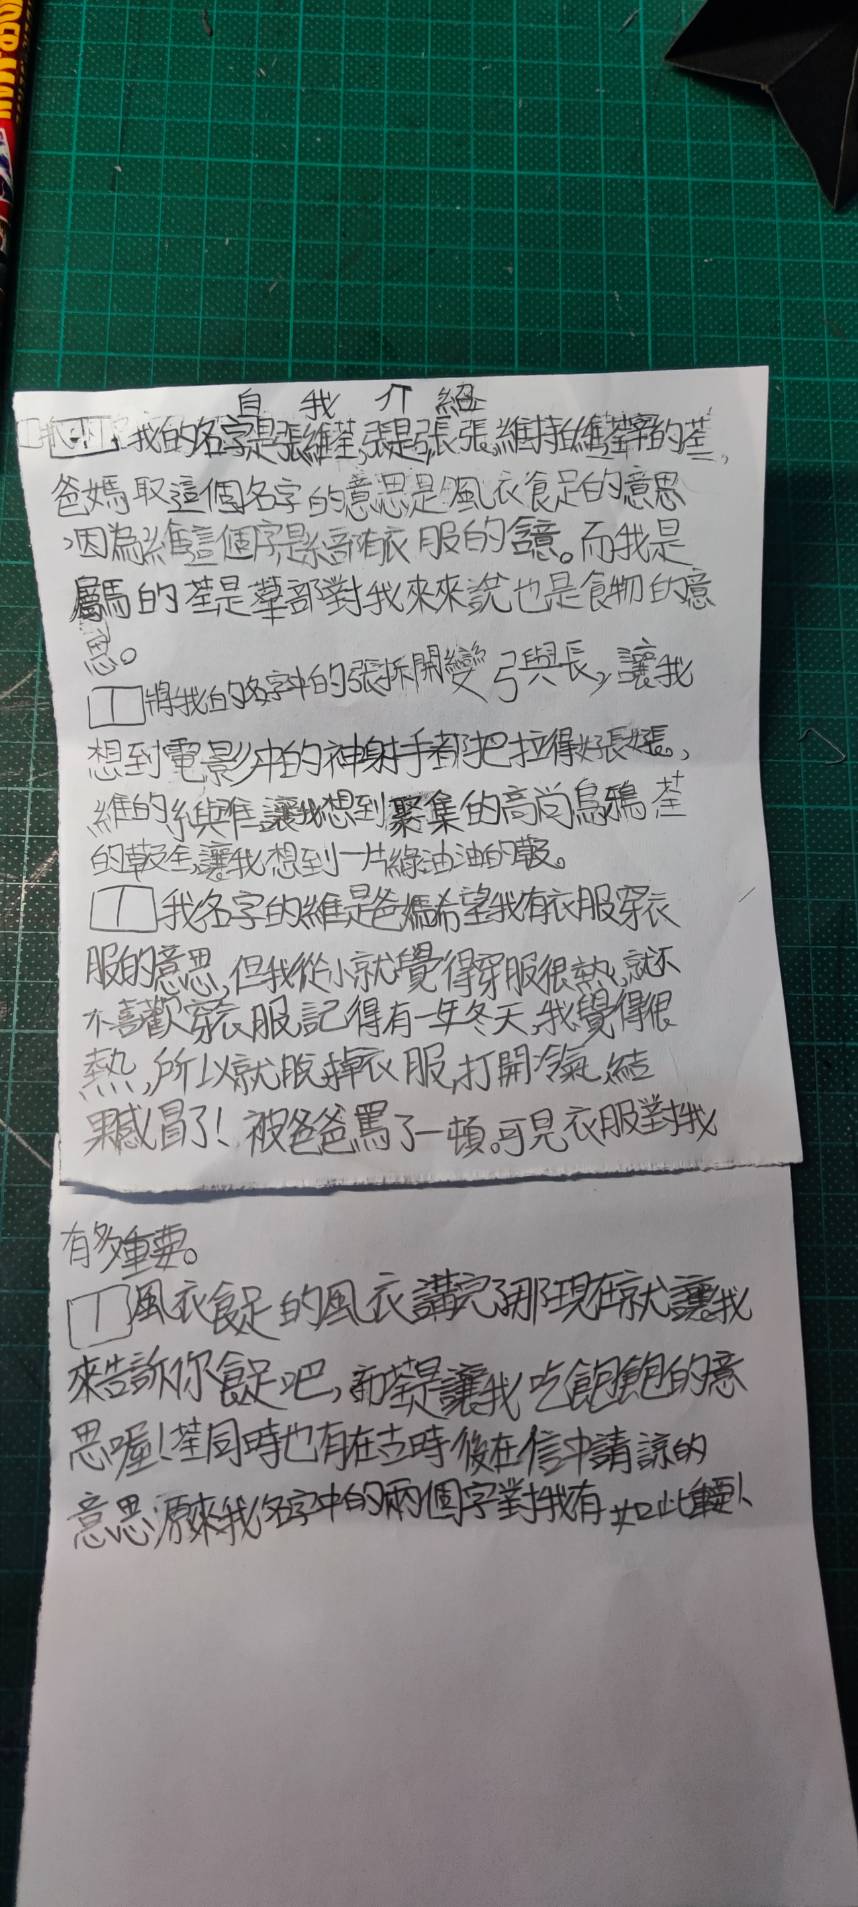 自我介紹
我的名字是張維荃,張是弓長張,維持的維,荃宰的荃,
爸媽取這個名字的意思是風衣食足的意思
,因為維這個字是糸部有衣服的含意。而我是
屬馬的荃是草部對我來來說也是食物的意
思。
將我的名字中的張拆開變弓與長,讓我
想到電影中的神射手都把拉得好長好長,
維的糸與隹,讓我想到聚集的高尚烏鴉荃
的草及全,讓我想到一片綠油油的草。
我名字的維是爸媽希望我有衣服穿衣
服的意思,但我從小就覺得穿服很熱,就不
不喜歡穿衣服,記得有一年冬天,我覺得很
熱,所以就脫掉衣服,打開冷氣,結
果感冒了!被爸爸罵了一頓。可見衣服對我
有多重要。
風衣食足的風衣講完了那現在就讓我
來告訴你食足吧,荃是讓我吃飽飽的意
思喔!荃同時也有在古時後在信中請諒的
意思原來我名字中的兩個字對我有如此重要!